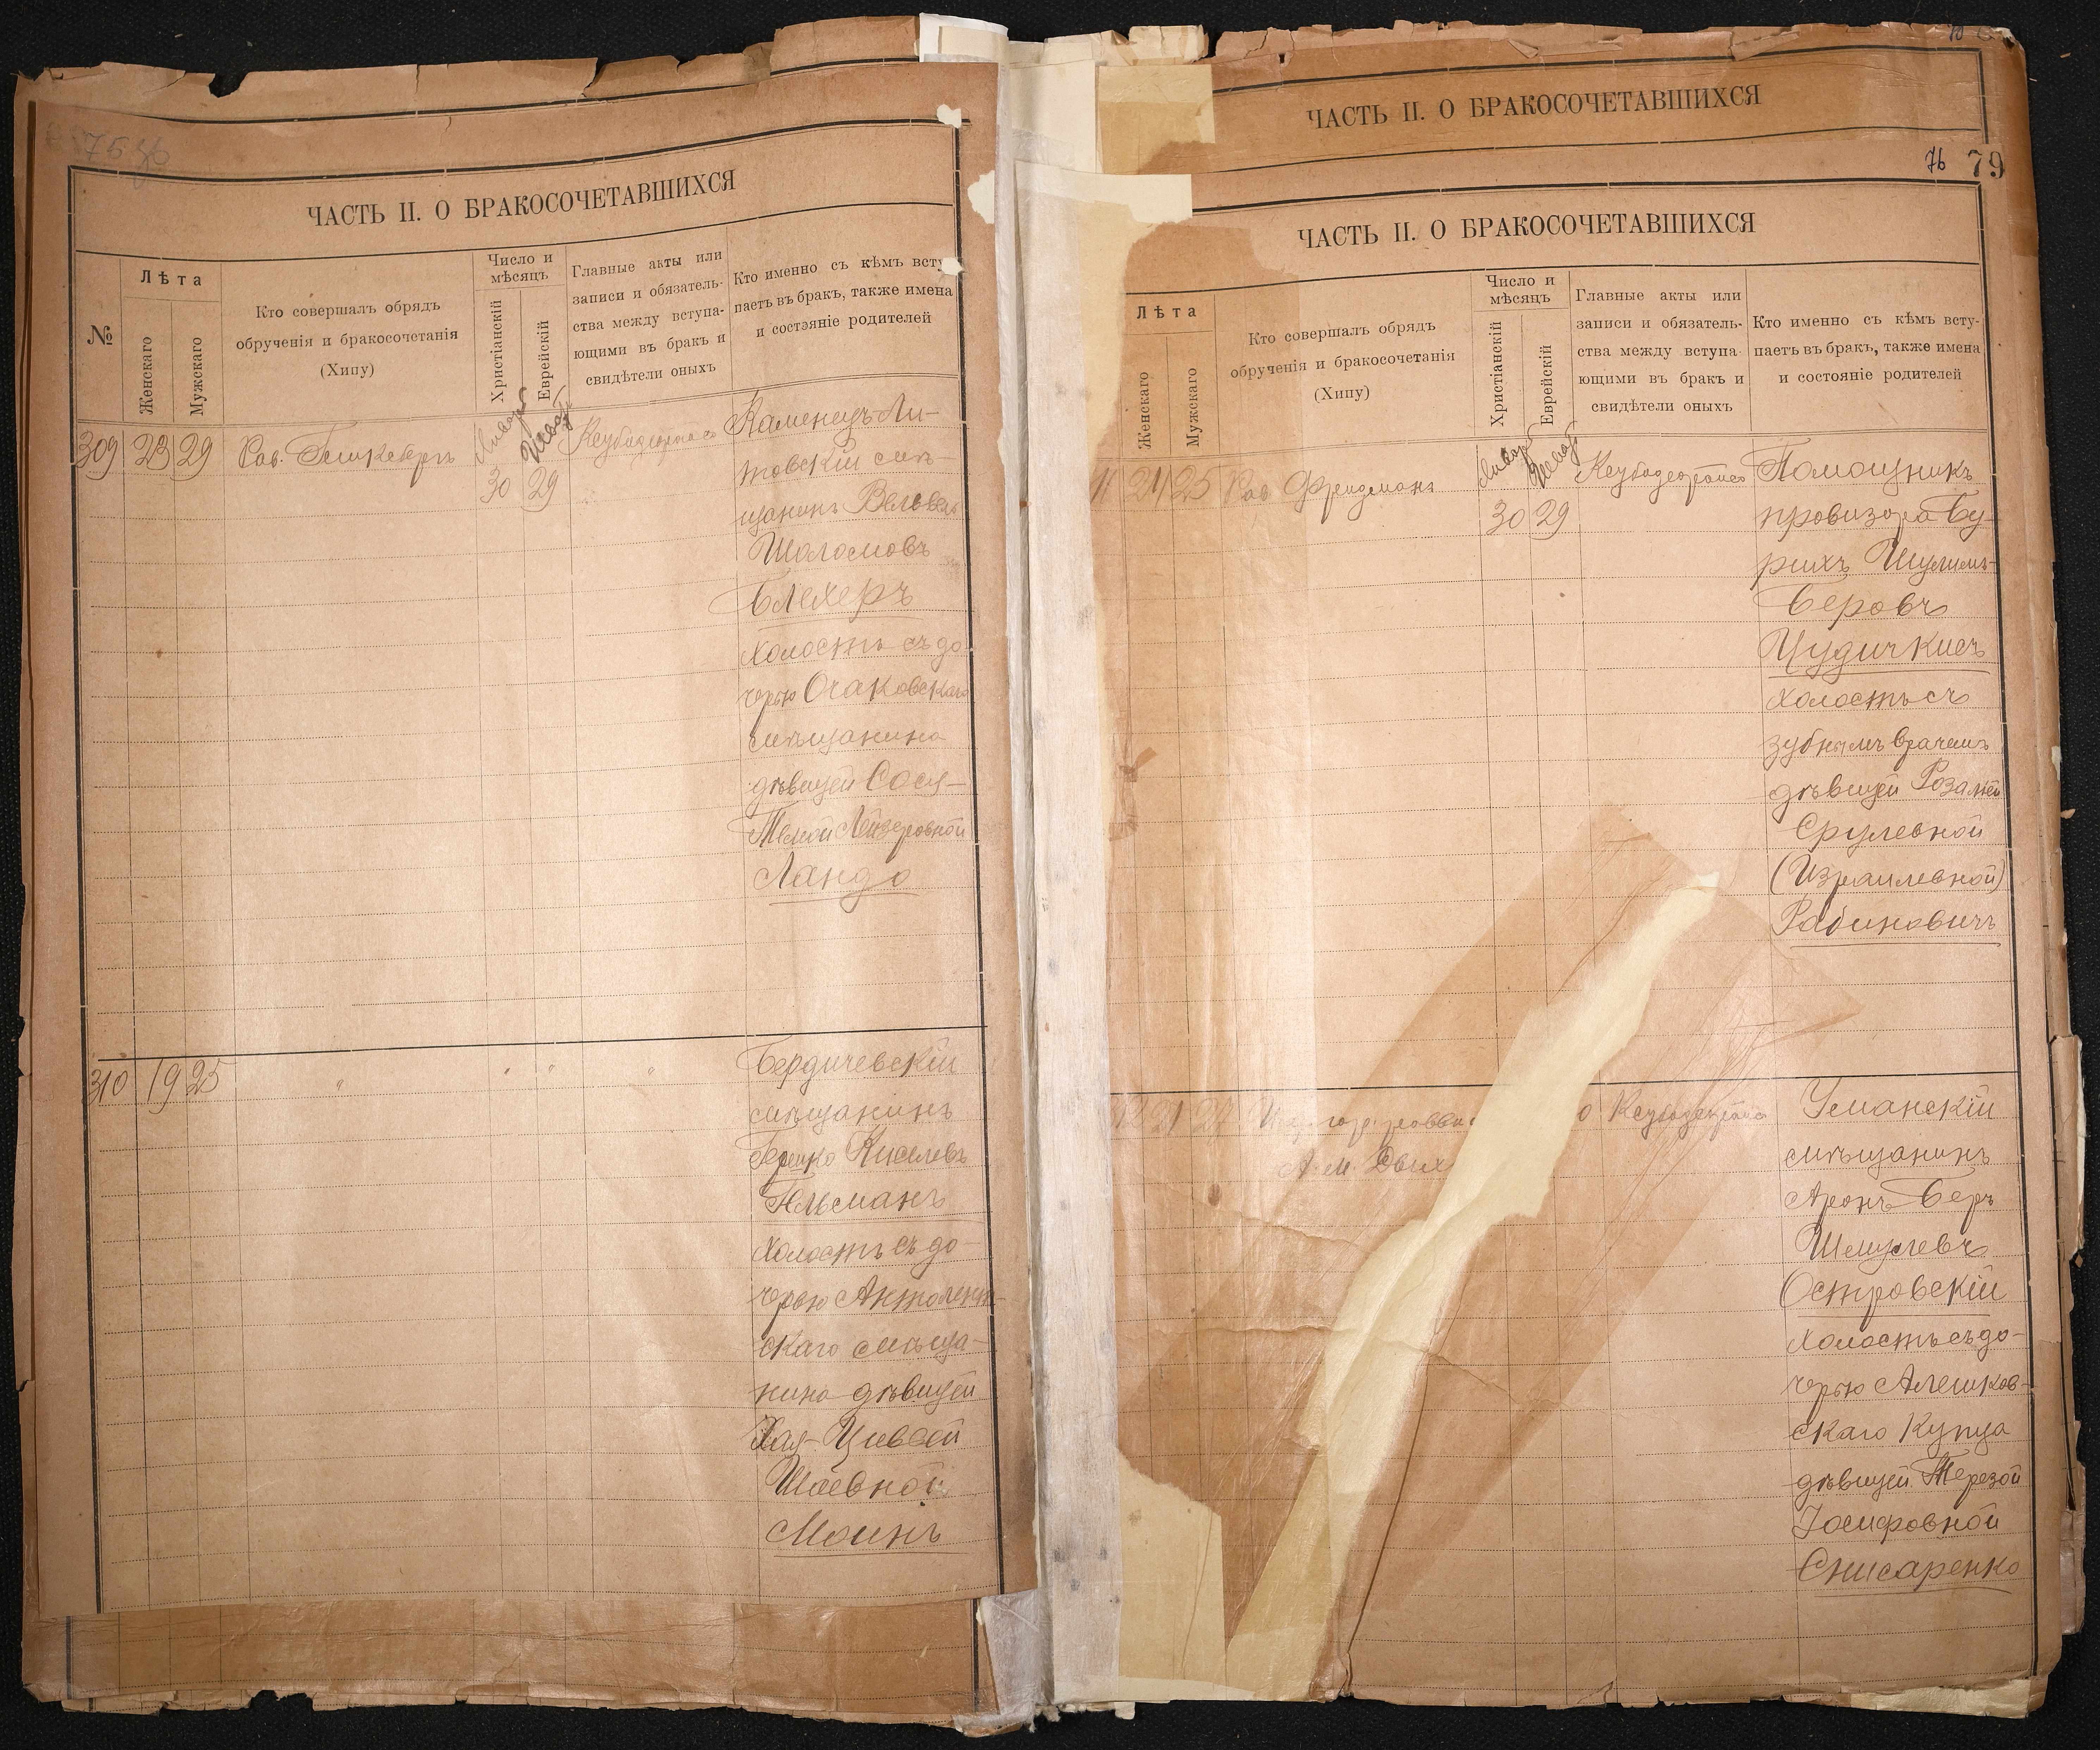 ЧАСТЬ II. О БРАКОСОЧЕТАВШИХСЯ
№
Лѣта
Женскаго
Мужскаго
Кто совершалъ обрядъ
обрученія и бракосочетанія
(Хипу)
Число и
мѣсяцъ
Христіанскій
Еврейскій
Главные акты или
записи и обязатель-
ства между вступа-
ющими въ бракъ и
свидѣтели оныхъ
Кто именно съ кѣмъ всту
паетъ въ бракъ, также имена
и состояніе родителей
309 23 29 Рав.
30 29
Каменецъ-Ли-
товскій мѣ-
щанинъ Вельвель
Шоломовъ
Блехеръ
холостъ съ до-
черью Очаковскаго
мѣщанина
дѣвицей Сося-
Лейзеровной
Ландо
310 19 25 " " " "
Бердичевскій
мѣщанинъ
Гершко Киселевъ
Гельманъ
холостъ съ до-
черью
скаго мѣща-
нина дѣвицей
Хая-Цивьей
Шаевной
Моинъ
ЧАСТЬ II. О БРАКОСОЧЕТАВШИХСЯ
76 79
ЧАСТЬ II. О БРАКОСОЧЕТАВШИХСЯ
Лѣта
Женскаго
Мужскаго
Кто совершалъ обрядъ
обрученія и бракосочетанія
(Хипу)
Число и
мѣсяцъ
Христіанскій
Еврейскій
Главные акты или
записи и обязатель-
ства между вступа-
ющими въ бракъ и
свидѣтели оныхъ
Кто именно съ кѣмъ всту-
паетъ въ бракъ, также имена
и состояніе родителей
11 21 25 Рав. Фридманъ
30 29
Помощникъ
провизора Бу-
рихъ Шулимъ-
Беровъ
Цудичкисъ
холостъ съ
зубнымъ врачемъ
дѣвицей Розаліей
Срулевной
(Израилевной)
Рабиновичъ
12 21 27
А. М.
Уманскій
мѣщанинъ
Аронъ-Беръ
Шмулевъ
Островскій
холостъ съ до-
черью Алешков-
скаго купца
дѣвицей Терезой
Іосифовной
Снисаренко